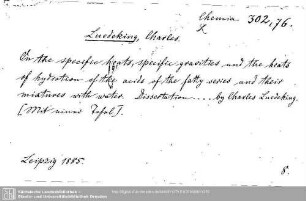 Chemia 302,76.
Luedeking, Charles.
On the specific heats, specific gravities, and the heats
of hydration of the acids of the fatty series and their
mixtures with water. Dissertation .... by Charles Luedeking.
[Mit einer Tafel].
Leipzig 1885.
8.
Sächsische Landesbibliothek -
Staats- und Universitätsbibliothek Dresden